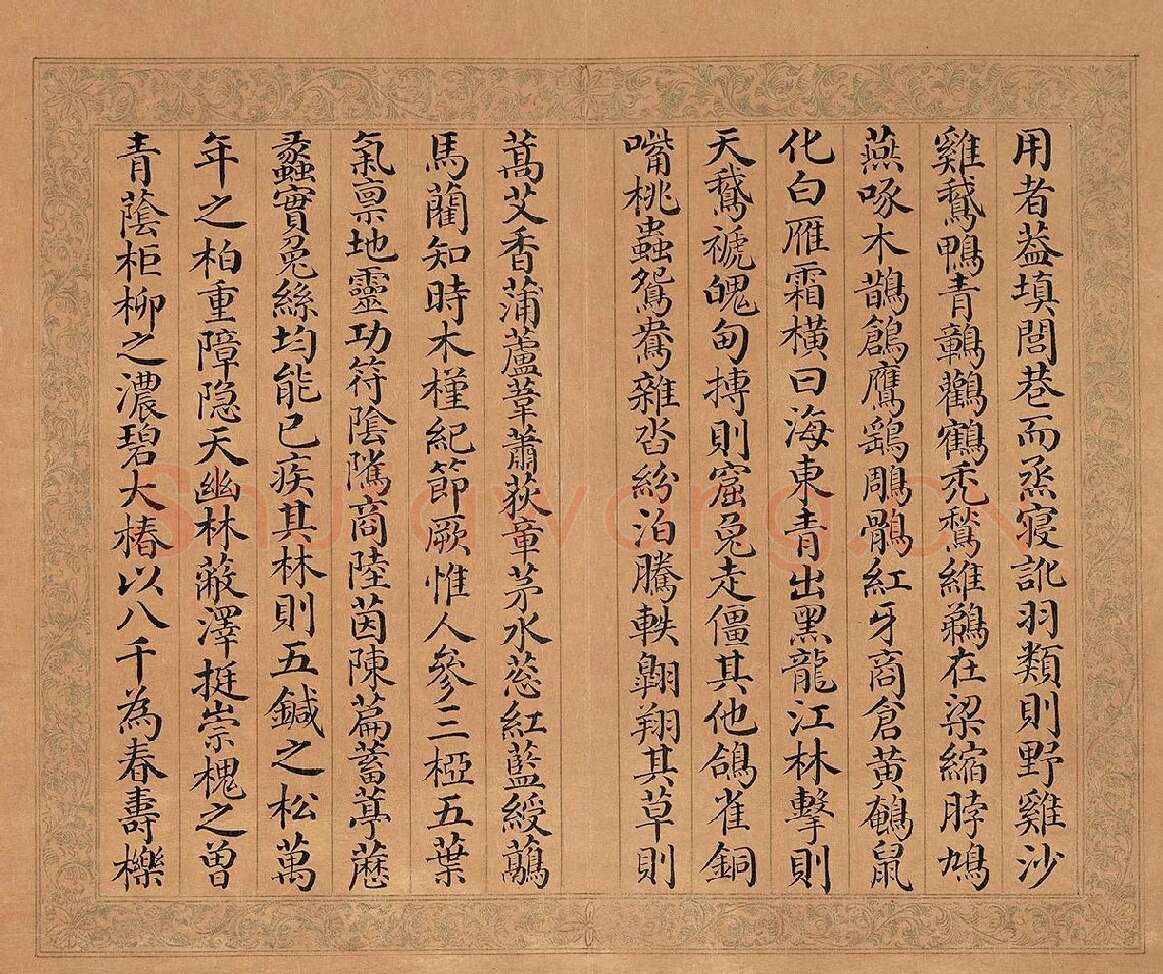 用者葢填閭巷而烝寢訛羽類則野雞沙
雞鵝鴨青鸛鶴禿鶖維鵜在梁縮脖鳩
燕啄木鵲鶬鷹鷂鵰鶻紅牙商倉黃鵪鼠
化白雁霜橫曰海東青出黑龍江林擊則
天鵝褫魄甸搏則窟兔走僵其他鴿雀銅
嘴桃蟲鴛鴦雜沓紛泊騰軼翺翔其草則
蒿艾香蒲蘆葦蕭荻章茅水蔥紅藍綬虉
馬藺知時木槿紀節厥惟人參三椏五葉
氣稟地靈功符陰騭商陸茵陳萹蓄葶藶
蠡實兔絲均能已疾其林則五鍼之松萬
年之柏重障隐天幽林蔽澤挺崇槐之曾
青蔭柜柳之濃碧大椿以八千為春壽櫟